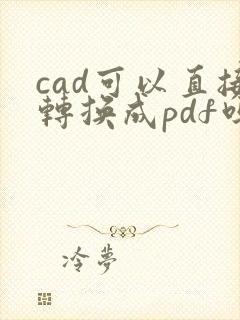 cad可以直接
轉換成pdf嗎
冷夢